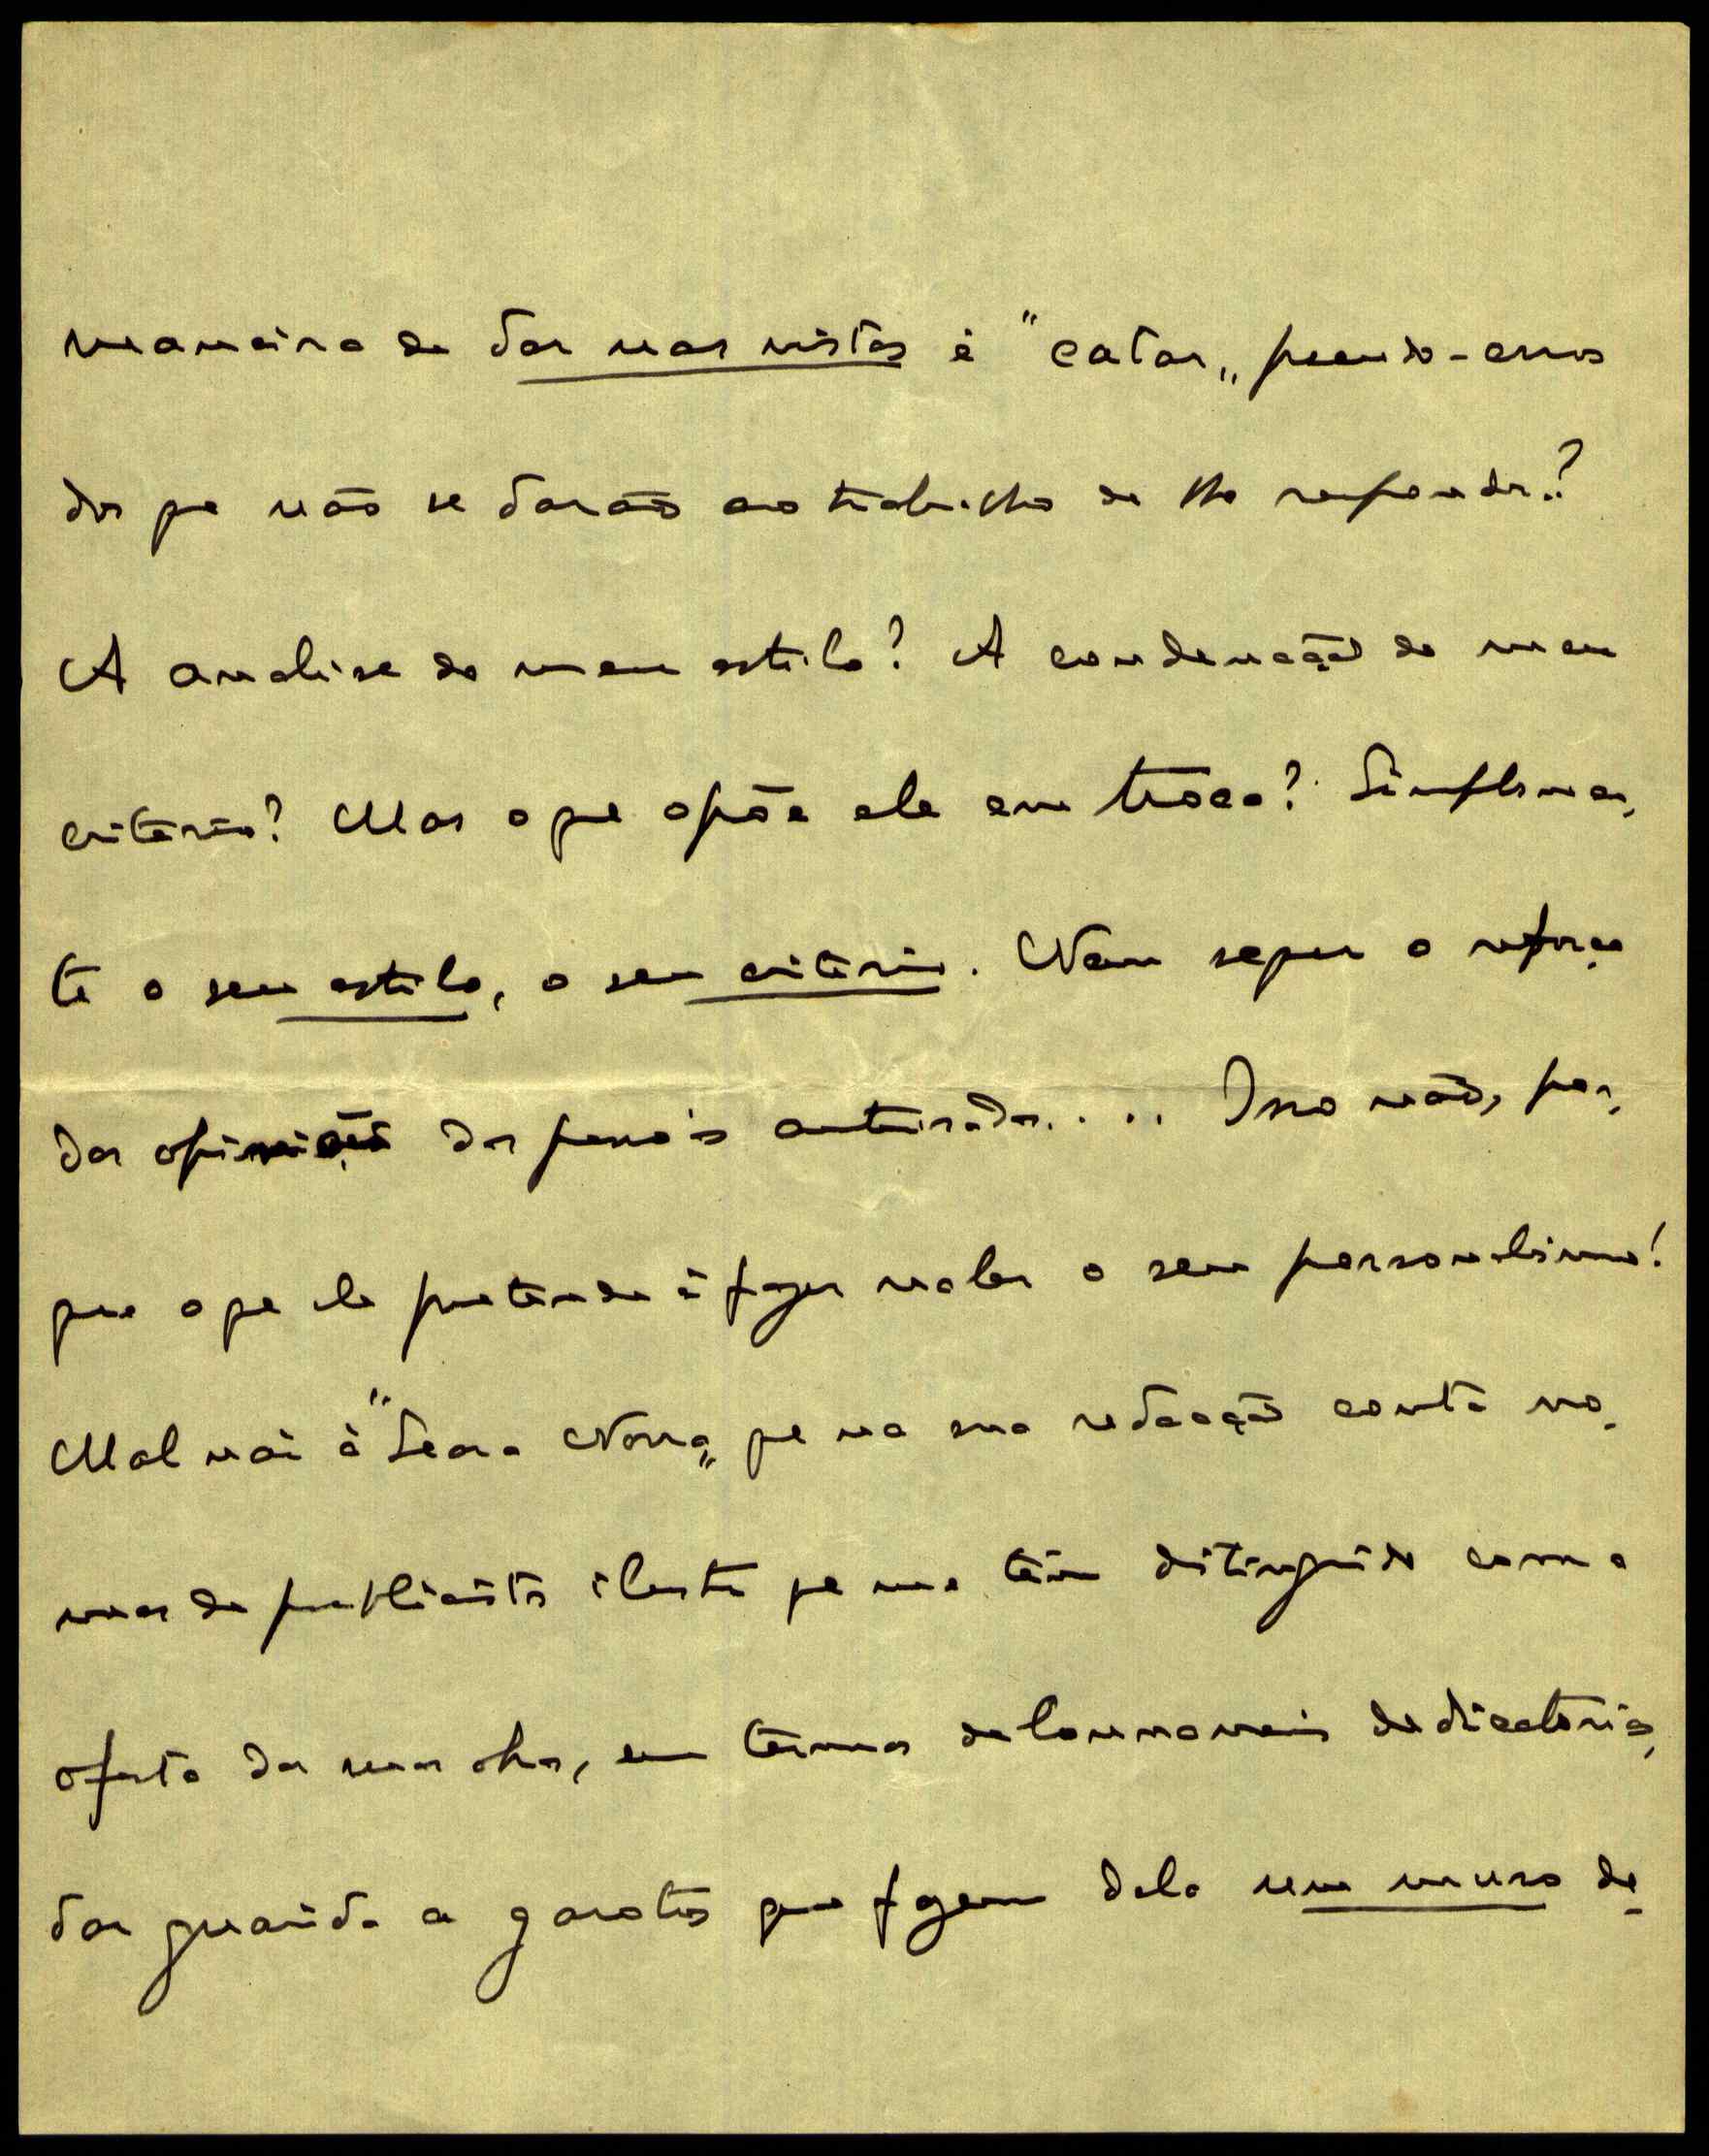 maneira de dar nas vistas é "catar" pseudo-erros
dos que não se darão ao trabalho de lho responder?
A analise do meu estilo? A condenação do meu
criterio? Mas o que opõe ele em troca? Simplesmen-
te o seu estilo, o seu criterio. Nem sequer o reforço
das opiniões das pessoas autorisadas.... Isso não, por-
que o que ele pretende é fazer valer o seu personalismo!
Mal vai á "Seara Nova" que na sua redacção conta no-
mes de publicistas ilustres que me têm distinguido com a
oferta das suas obras, em termos de louvaveis dedicatorias,
dar guarida a garotos que fazem dela um muro de-